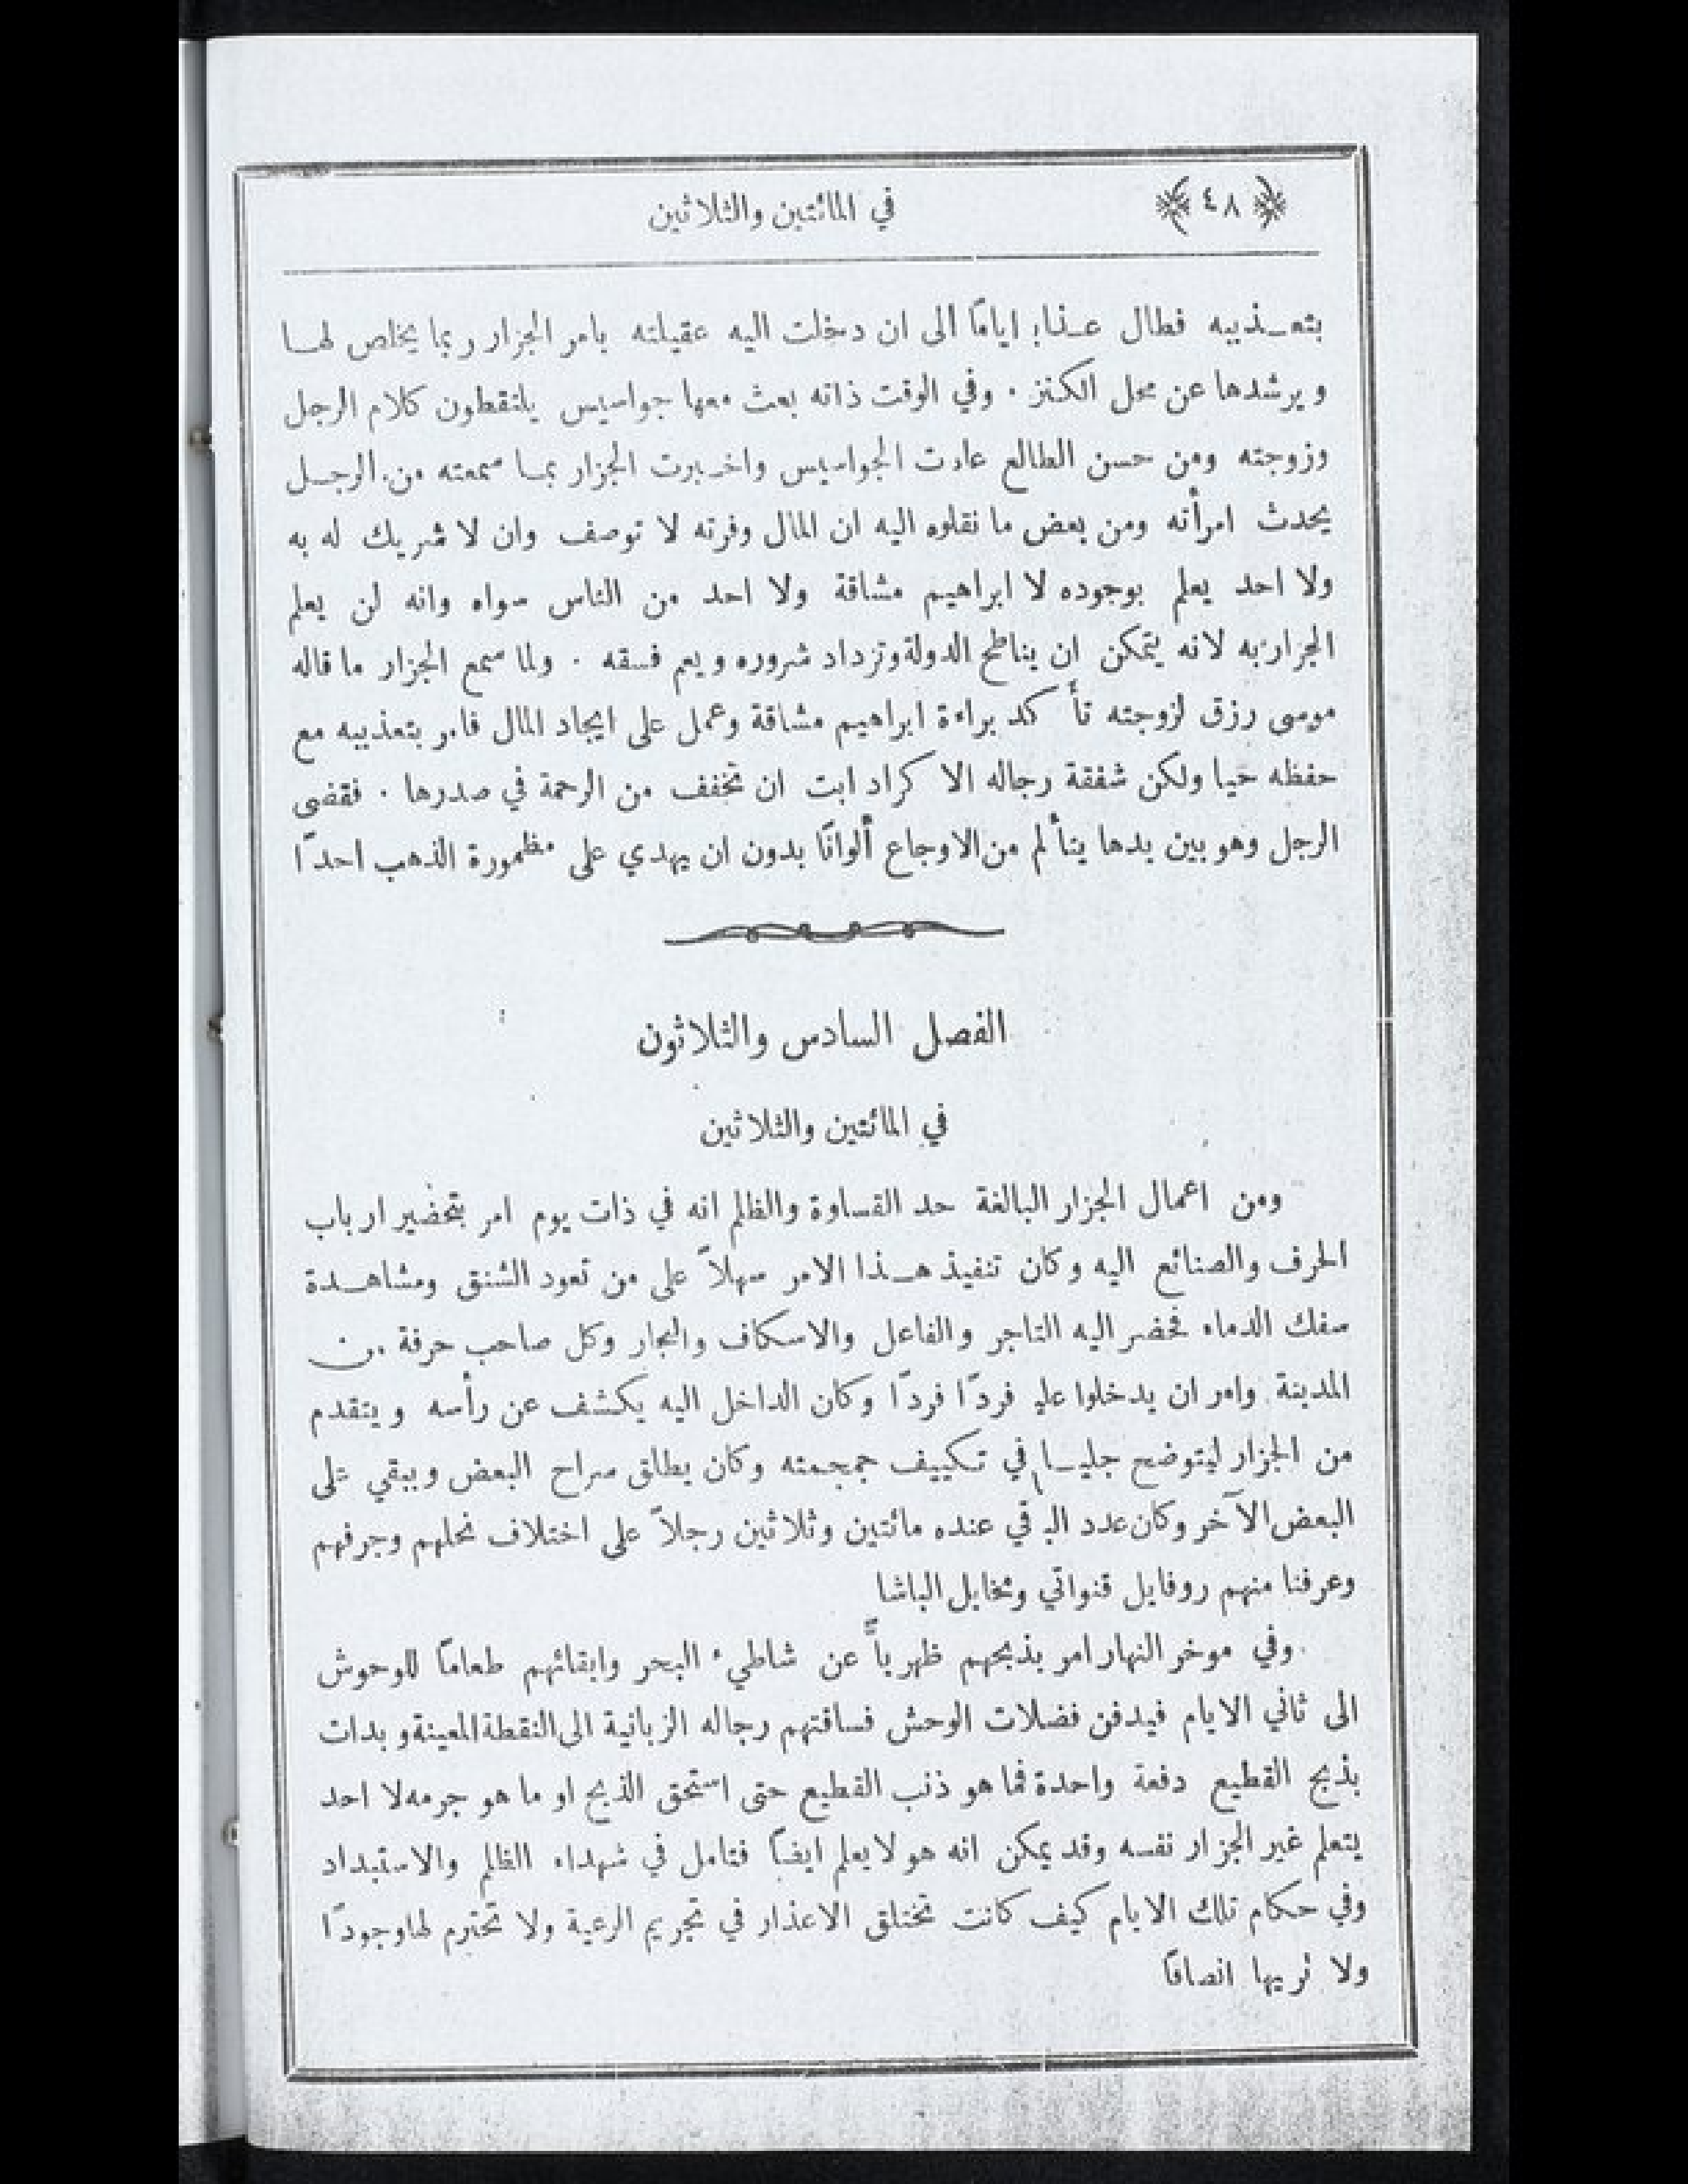 ﴿ ٤٨ ﴾ في المائتين والثلاثين
بتعذيبه فطال عذابه اياماً الى ان دخلت اليه عقيلته بامر الجزار ربما يخلص لها
ويرشدها عن محل الكنز . وفي الوقت ذاته بعث معها جواسيس يلتقطون كلام الرجل
وزوجته ومن حسن الطالع عادت الجواسيس واخبرت الجزار بما سمعته من الرجل
يحدث امرأته ومن بعض ما نقلوه اليه ان المال وفرته لا توصف وان لا شريك له به
ولا احد يعلم بوجوده لا ابراهيم مشاقة ولا احد من الناس سواه وانه لن يعلم
الجزار به لانه يتمكن ان يناطح الدولة وتزداد شروره ويعم فسقه . ولما سمع الجزار ما قاله
موسى رزق لزوجته تأكد براءة ابراهيم مشاقة وعمل على ايجاد المال فامر بتعذيبه مع
حفظه حيا ولكن شفقة رجاله الاكراد ابت ان تخفف من الرحمة في صدرها . فقضى
الرجل وهو بين يدها يتألم من الاوجاع ألواناً بدون ان يهدي على مظمورة الذهب احداً
الفصل السادس والثلاثون
في المائتين والثلاثين
ومن اعمال الجزار البالغة حد القساوة والظلم انه في ذات يوم امر بتحضير ارباب
الحرف والصنائع اليه وكان تنفيذ هذا الامر سهلاً على من تعود الشنق ومشاهدة
سفك الدماء فحضر اليه التاجر والفاعل والاسكاف والنجار وكل صاحب حرفة من
المدينة وامر ان يدخلوا عليه فرداً فرداً وكان الداخل اليه يكشف عن رأسه ويتقدم
من الجزار ليتوضح جليا في تكييف جمجمته وكان يطلق سراح البعض ويبقي على
البعض الآخر وكان عدد الباقي عنده مائتين وثلاثين رجلاً على اختلاف نحلهم وحرفهم
وعرفنا منهم روفايل قنواتي ومخايل الباشا
وفي موخر النهار امر بذبحهم ظهرياً عن شاطيء البحر وابقائهم طعاماً للوحوش
الى ثاني الايام فيدفن فضلات الوحش فساقتهم رجاله الزبانية الى النقطة المعينة وبدات
بذبح القطيع دفعة واحدة فما هو ذنب القطيع حتى استحق الذبح او ما هو جرمه لا احد
يتعلم غير الجزار نفسه وقد يمكن انه هو لا يعلم ايضاً فتامل في شهداء الظلم والاستبداد
وفي حكام تلك الايام كيف كانت تختلق الاعذار في تجريم الرعية ولا تحترم لها وجوداً
ولا تريها انصافاً